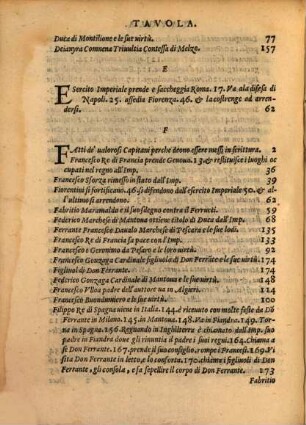 TAVOLA.
Duca di Montilione e le sue virtù. 77
Deianyra Comnena Triuultia Contessa di Melzo. 157
E
Esercito Imperiale prende e saccheggia Roma. 17. Va ala difesa di
Napoli. 25. assedia Fiorenza. 46. & la costrenge ad arren-
dersi. 62
F
Fatti de' valorosi Capitani perche deono essere messi in scrittura. 2
Francesco Re di Francia prende Genoua. 13. & restituisce i luoghi oc-
cupati nel regno all'Imp. 36
Francesco Sforza rimesso in stato dall'Imp. 39
Fiorentini si fortificano. 46. si difendono dall'esercito Imperiale 50. & al-
l'ultimo si arrendono. 62
Fabritio Maramaldo e il suo sdegno contra il Ferrucci. 59
Federico Marchese di Mantoua ottiene titolo di Duca dall'Imp. 68
Ferrante Francesco Daualo Marchese di Pescara e le sue lodi. 135
Francesco Re di Francia fa pace con l'Imp. 139
Francesco e Geronimo da Pesaro e le loro virtù. 142
Francesco Gonzaga Cardinale figliuolo di Don Ferrãte e le sue virtù. 174
Figliuoli di Don Ferrante. 174
Federico Gonzaga Cardinale di Mantoua e le sue virtù. 148
Francesco Vlloa padre dell'auttore morto in Algieri. 113
Francesco Buoninsuiero e le sue virtù. 100
Filippo Re di Spagna viene in Italia. 144. è riceuuto con molte feste da Dõ
Ferrante in Milano. 145. in Mantoua. 148. Va in Fiandra. 149. Tor-
na in Spagna. 156. Reguando in Inghilterra è chiamato dall'Imp. suo
padre in Fiandra doue gli rinuntia il padre i suoi regni. 164. Chiama a
se Dõ Ferrante. 167. prende il suo consiglio, rompe i Francesi. 169. Vi
sita Don Ferrante in letto, e lo conforta. 170. chiama i figliuoli di Don
Ferrante, gli consola, e fa sepellire il corpo di Don Ferrante. 173
Fabritio